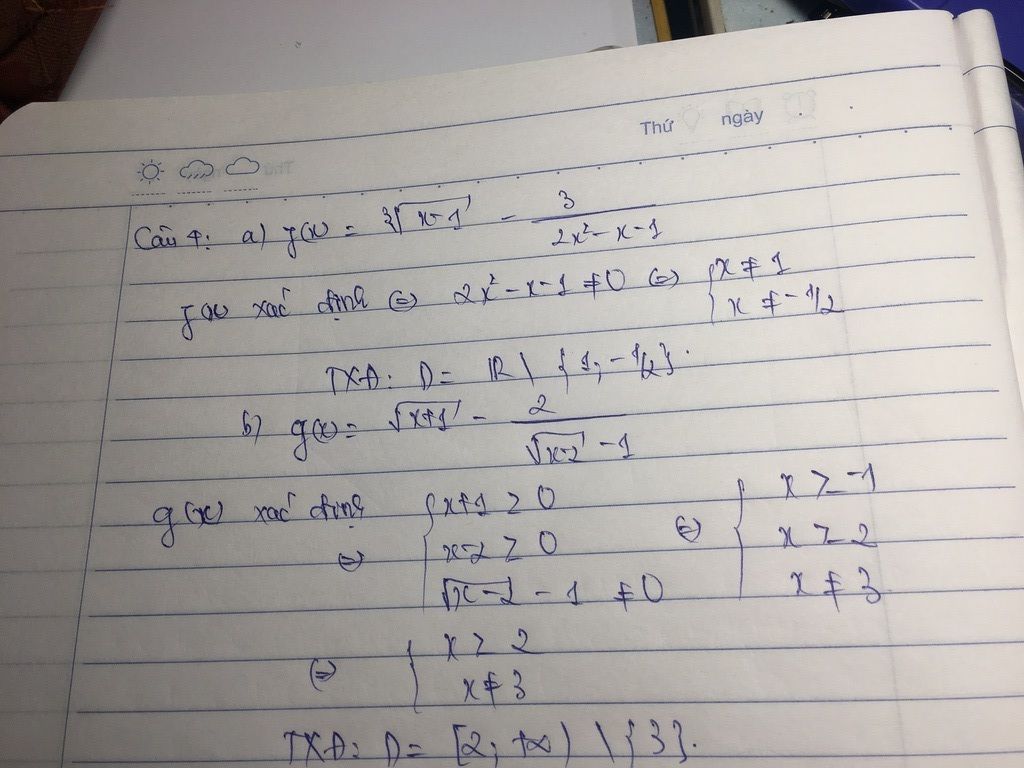 Thứ ngày
Câu 4: a) f(x) = ∛(x-1) - 3/(2x²-x-1)
f(x) xác định ⇔ 2x²-x-1 ≠ 0 ⇔ { x ≠ 1
x ≠ -1/2
TXĐ: D = ℝ \ {1; -1/2}.
b) g(x) = √(x+1) - 2/(√(x-2) - 1)
g(x) xác định
⇔ { x+1 ≥ 0 ⇔ { x ≥ -1
x-2 ≥ 0 x ≥ 2
√(x-2) - 1 ≠ 0 x ≠ 3
⇔ { x ≥ 2
x ≠ 3
TXĐ: D = [2; +∞) \ {3}.